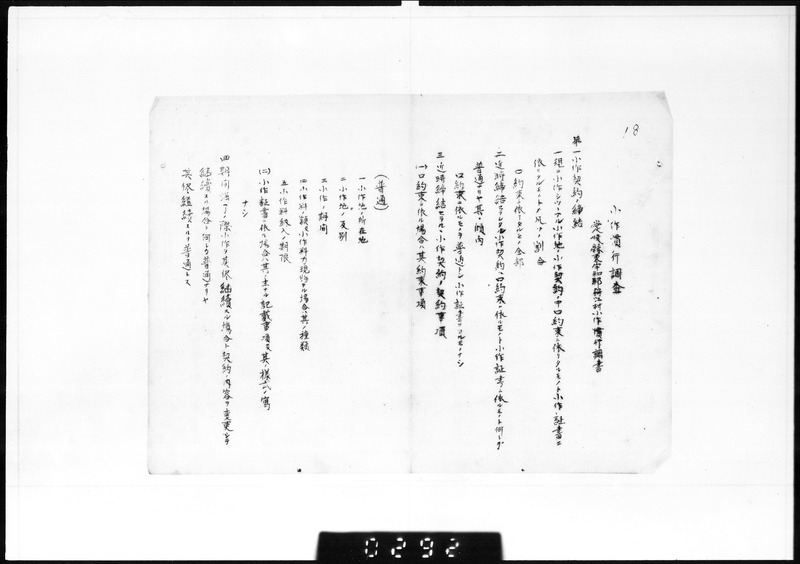 18
小作慣行調査
愛媛縣東宇和郡 村小作慣行調書
第一小作契約ノ締結
一現ニ小作シツヽアル小作地ノ小作契約ノ中口約束ニ依リタルモノト小作証書ニ
依リタルモノトノ凡ソノ割合
口約束ニ依リタルモノ全部
二近時締結セラレタル小作契約ハ口約束ニ依ルモノト小作証書ニ依ルモノト何レガ
普通ナリヤ其ノ傾向
口約束ニ依ルモノヲ普通トシ小作証書ニヨルモノナシ
三近時締結セラレタル小作契約ノ契約事項
(一)口約束ニ依ル場合ハ其ノ約束事項
(普通)
一小作地ノ所在地
二小作地ノ反別
三小作ノ期間
四小作料額及小作料ガ現物ナル場合ハ其ノ種類
五小作料納入ノ期限
(二)小作証書ニ依ル場合ハ其ノ主ナル記載事項及其ノ様式ノ寫
ナシ
四期間滿了ノ際小作ヲ其侭継續スル場合ト契約ノ内容ヲ変更シテ
継續スル場合ト何レカ普通ナリヤ
其侭継続スルヲ普通トス
0292